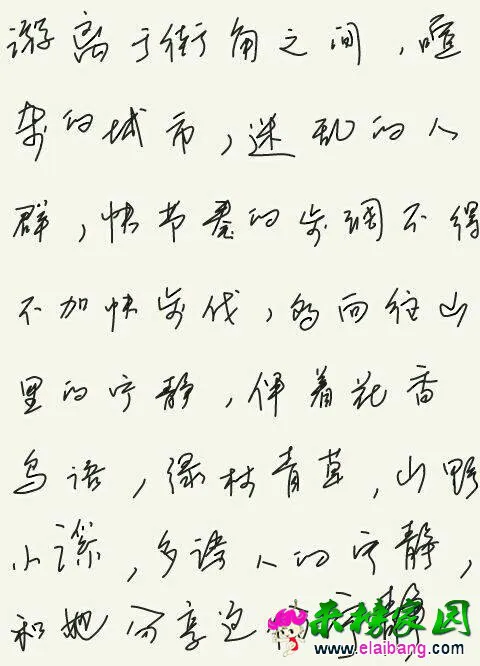 游离于街角之间,喧
杂的城市,迷乱的人
群,快节奏的步调不得
不加快步伐,的向往山
里的宁静,伴着花香
鸟语,绿林青草,山野
小溪,多诱人的宁静,
和她分享这宁静
亲榜家园
www.elaibang.com